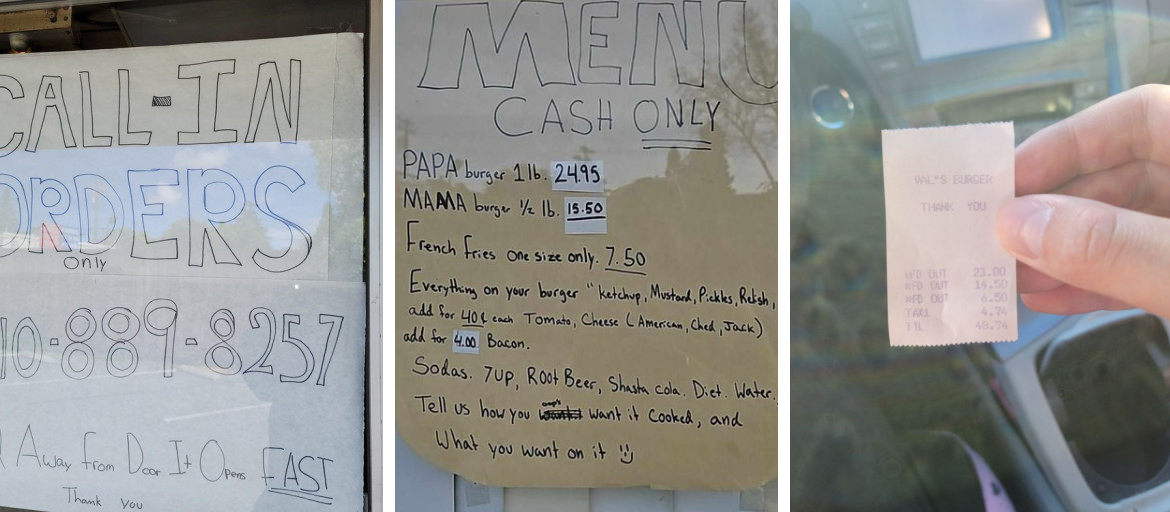 CALL-IN
ORDERS
only
10-889-8257
Away from Door It Opens FAST
Thank you
MENU
CASH ONLY
PAPA burger 1 lb. 24.95
MAMA burger 1/2 lb. 15.50
French Fries one size only. 7.50
Everything on your burger " Ketchup, Mustard, Pickles, Relish,
add for 40¢ each Tomato, Cheese (American, Ched, Jack)
add for 4.00 Bacon.
Sodas. 7up, Root Beer, Shasta cola. Diet. Water.
oops
Tell us how you want it Cooked, and
What you want on it
WAL'S BURGER
THANK YOU
MFD OUT 23.00
MFD OUT 14.50
MFD OUT 6.50
TAX1 4.74
TTL 48.74